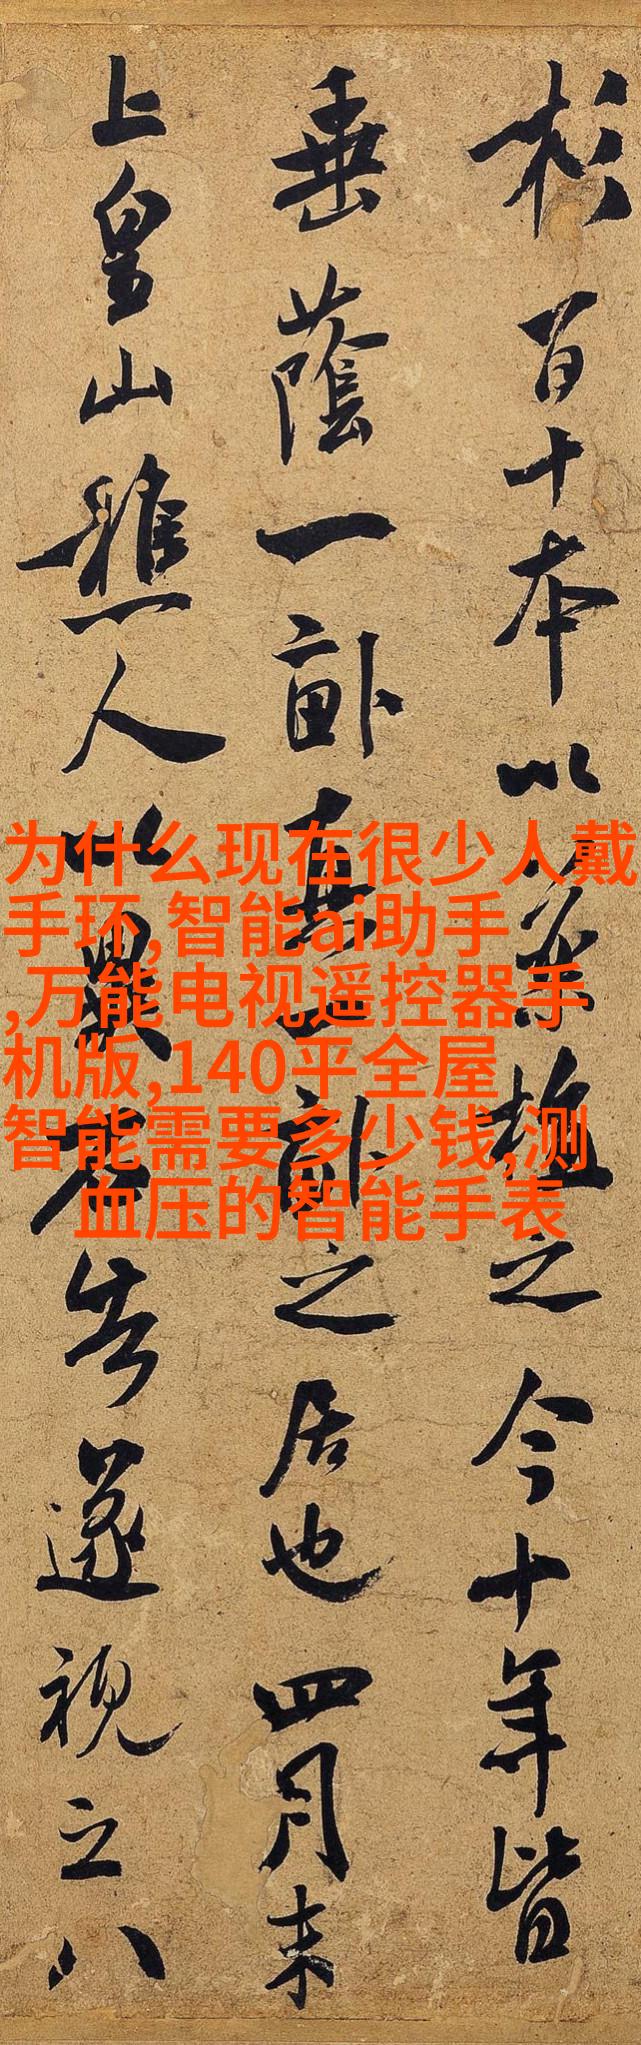 杉百十本以植之今十年皆
垂蔭一畝真一畝之居也四月末
上皇山樵人以異石告遂視之八
为什么现在很少人戴
手环,智能ai助手
,万能电视遥控器手
机版,140平全屋
智能需要多少钱,测
血压的智能手表